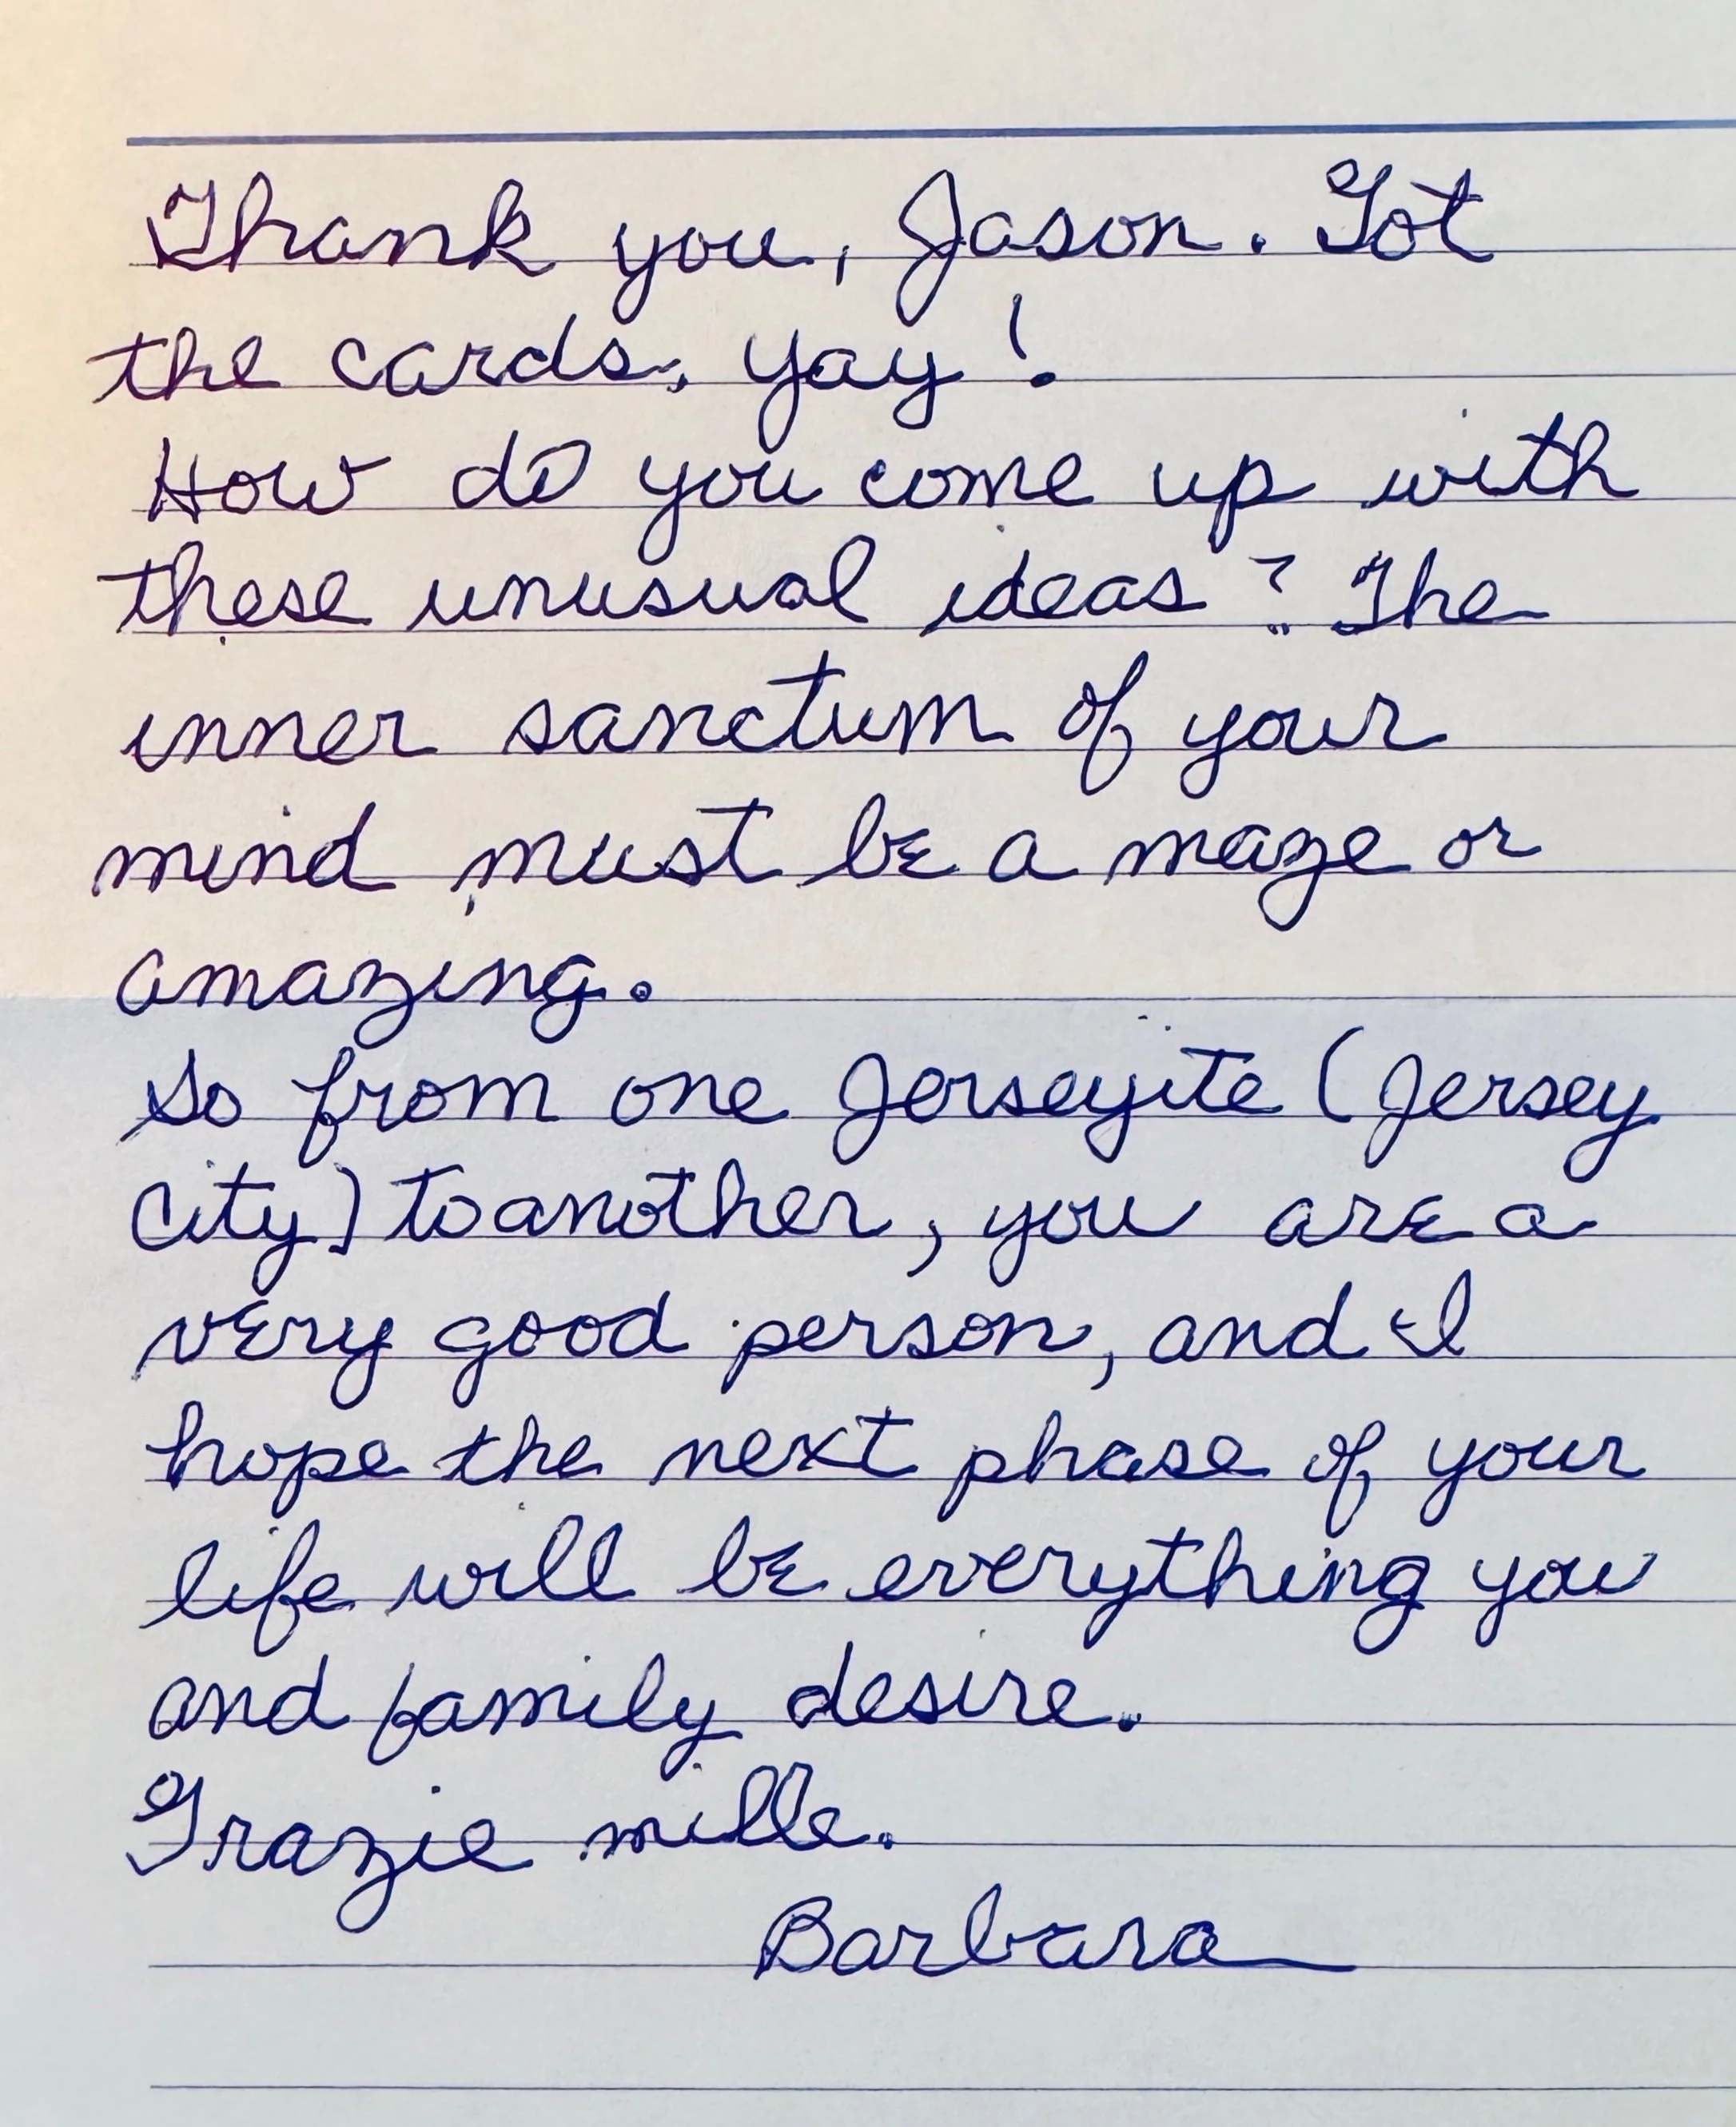 Thank you, Jason. Got
the cards, yay!
How do you come up with
these unusual ideas? The
inner sanctum of your
mind must be a maze or
amazing.
So from one Jerseyite (Jersey
City) to another, you are a
very good person, and I
hope the next phase of your
life will be everything you
and family desire.
Grazie mille.
Barbara